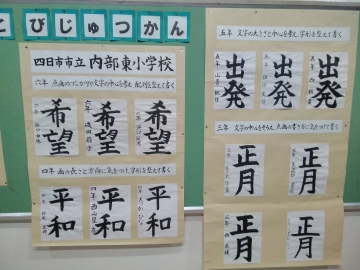 こびじゅつかん
四日市市立内部東小学校
六年 点画のつながりや文字の中心を考え 配列を整えて書く
希望
希望
希望
四年 画の長さと方向に気をつけ、字形を整えて書く
平和
平和
平和
五年 文字の大きさと中心を考え、字形を整えて書く
出発
出発
出発
三年 文字の中心をそろえ、点画の書き方に気をつけて書く
正月
正月
正月
正月